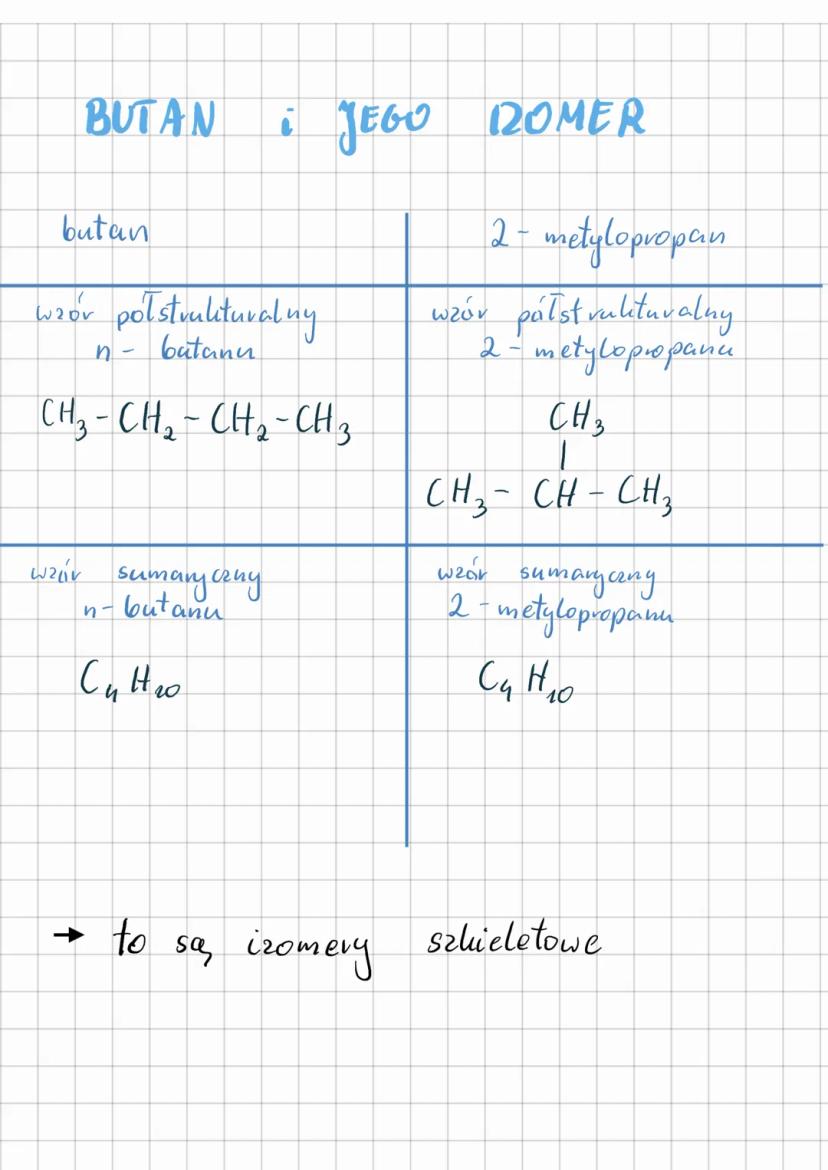 BUTAN i JEGO IZOMER
butan
2 - metylopropan
wzór półstrukturalny
n - butanu
CH₃ - CH₂ - CH₂ - CH₃
wzór półstrukturalny
2 - metylopropanu
CH₃
|
CH₃ - CH - CH₃
wzór sumaryczny
n - butanu
C₄H₁₀
wzór sumaryczny
2 - metylopropanu
C₄H₁₀
→ to są izomery szkieletowe